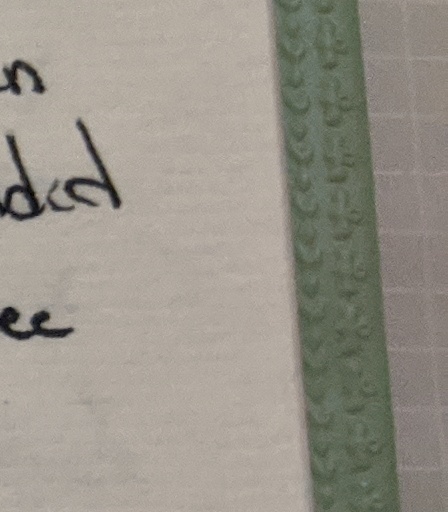 n
ded
ee